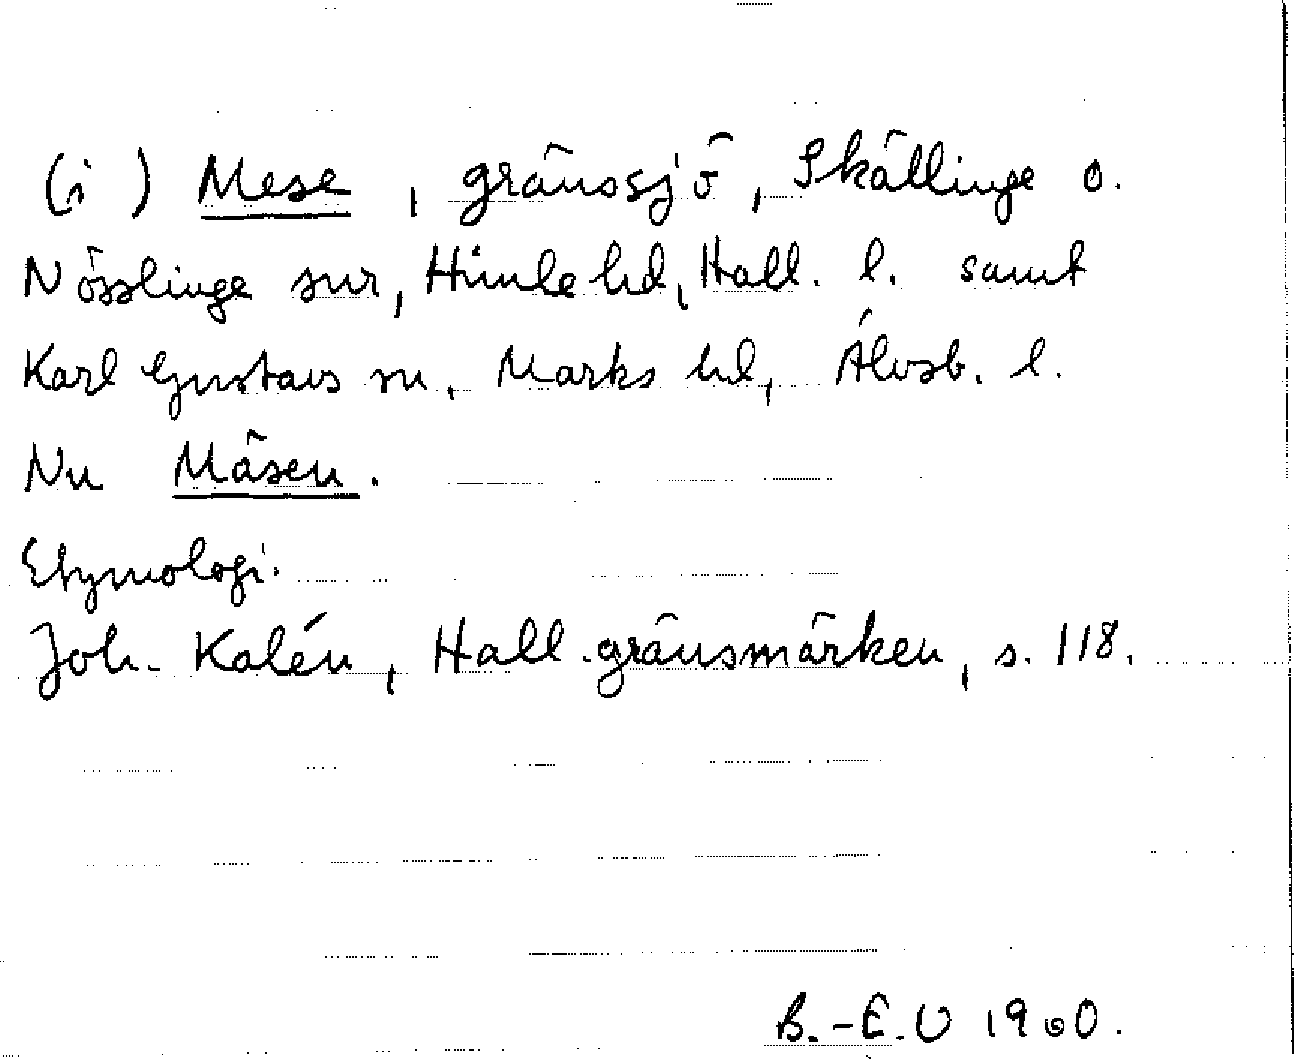 (i ) Mese, gränssjö, Skällinge o.
Nösslinge snr, Himle hd, Hall. l. samt
Karl Gustavs sn, Marks hd, Älvsb. l.
Nu Mäsen.
Etymologi.
Joh. Kalén, Hall. gränsmärken, s. 118.
B.-E.U